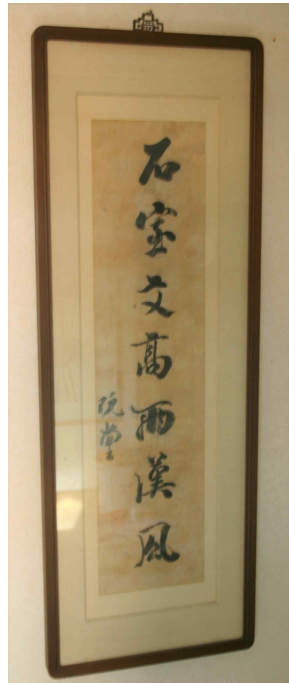 石室文高兩漢風
阮堂